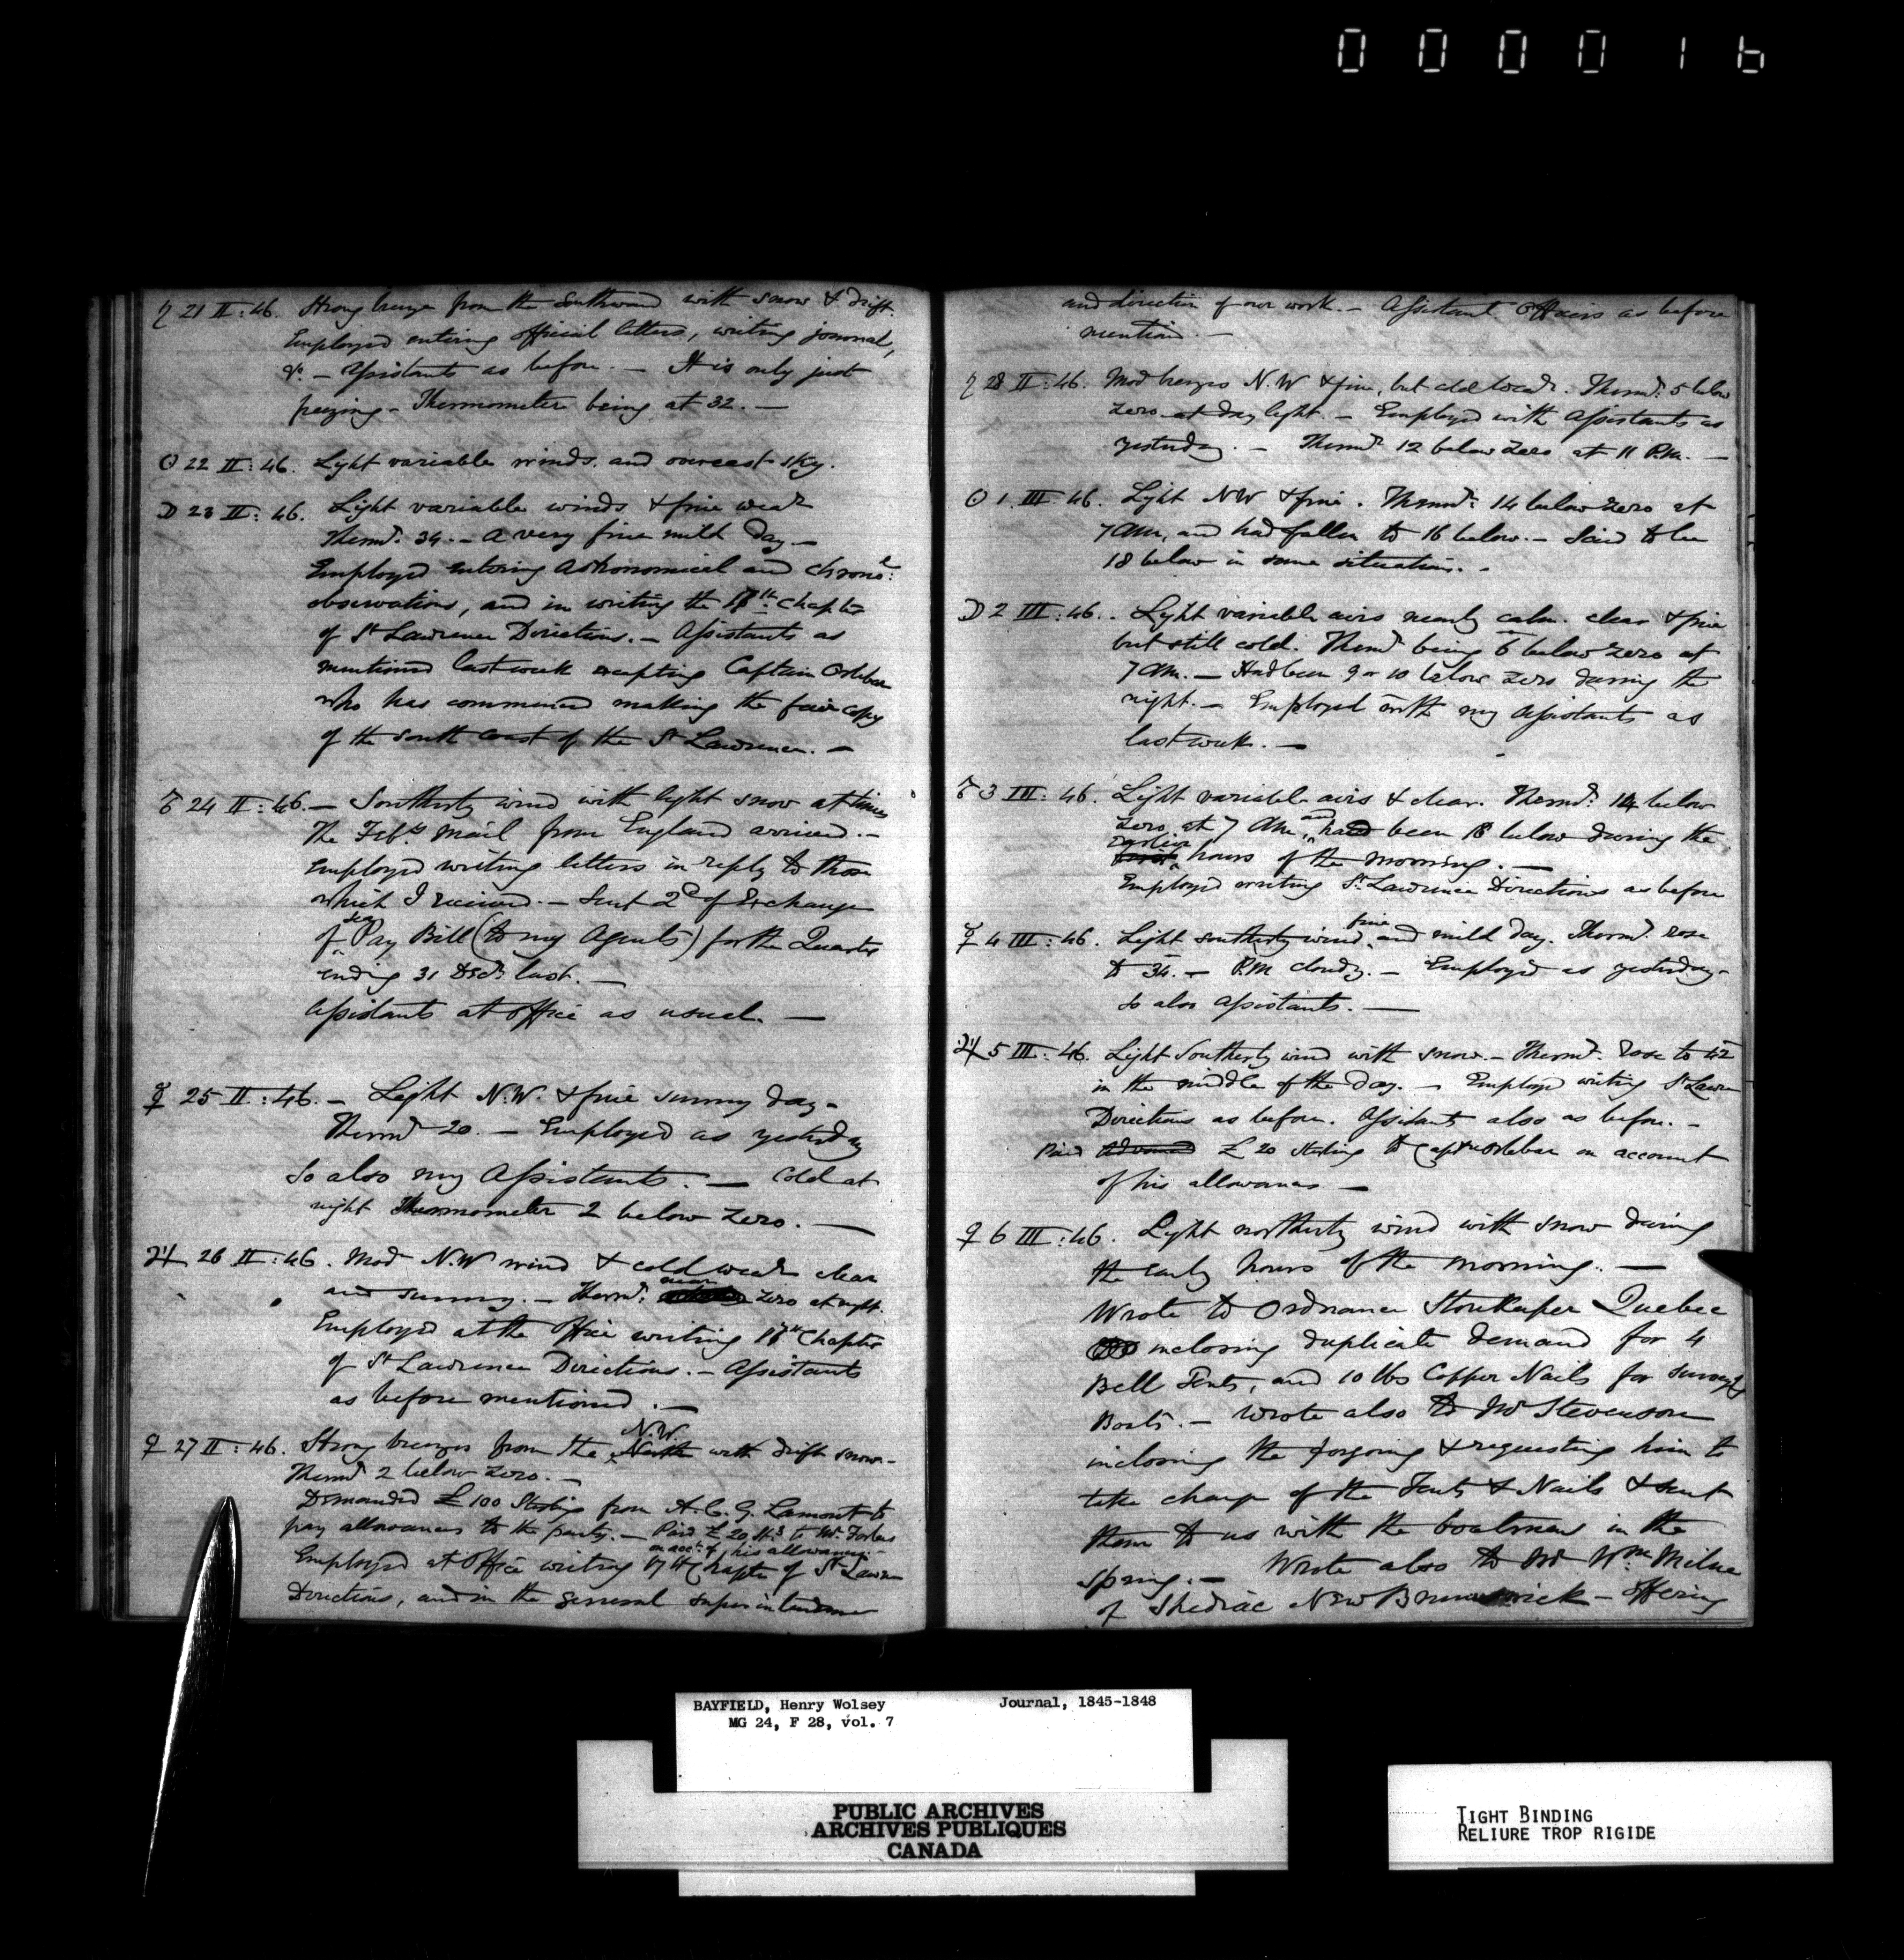 0 0 0 0 1 6
♄ 21 II: 46. Strong breeze from the Southward with snow & drift.
Employed entering official letters, writing journal,
&c. – Assistants as before. – It is only just
freezing – Thermometer being at 32. –
☉ 22 II: 46. Light variable winds and overcast sky.
☽ 23 II: 46. Light variable winds & fine weath
Thermr. 34. – A very fine mild day –
Employed entering Astronomical and Chronl:
observations, and in writing the 17th: Chapter
of St Lawrence Directions. – Assistants as
mentioned last week excepting Captain Orlebar
who has commenced making the fair copy
of the South Coast of the St Lawrence. –
♂ 24 II: 46. – Southerly wind with light snow at times
The Feby. Mail from England arrived. –
Employed writing letters in reply to those
which I received. – Sent 2d of Exchange
of Sea Pay Bill (to my Agents) for the Quarter
ending 31 Decr last. –
Assistants at office as usual. –
☿ 25 II: 46. – Light N.W. & fine sunny day –
Thermr 20. – Employed as yesterday
so also my Assistants. – Cold at
night Thermometer 2 below Zero. –
♃ 26 II: 46. Mod N.W wind & cold weath clear
and sunny. – Thermr: near Zero at night.
Employed at the Office writing 17th Chapter
of St Lawrence Directions. – Assistants
as before mentioned. –
♀ 27 II: 46. Strong breezes from the N.W. North with drift snow –
Thermr 2 below Zero. –
Demanded £100 Sterling from A.C.G. Lamont to
pay allowances to the party. – Paid £20 Stg to Mr. Forbes
on acct. of his allowances –
Employed at Office writing 17th Chapter of St Lawre
Directions, and in the general superintendence
and direction of our work. – Assistant Officers as before
mention. –
♄ 28 II: 46. Mod breezes N.W & fine, but cold weathr. Thermr. 5 below
Zero at day light. – Employed with Assistants as
yesterday. – Thermr 12 below Zero at 11 P.M. –
☉ 1. III 46. Light NW & fine. Thermr: 14 below Zero at
7 AM, and had fallen to 16 below. – Said to be
18 below in some situations. –
☽ 2 III: 46. . Light variable airs nearly calm. clear & fine
but still cold. Thermr being 6 below Zero at
7 AM. – Had been 9 or 10 below Zero during the
night. – Employed with my Assistants as
last week. –
♂ 3 III: 46. Light variable airs & clear. Thermr: 14 below
Zero at 7 AM, and had been 18 below during the
earlier first hours of the morning. –
Employed writing St. Lawrence Directions as before
☿ 4 III: 46. Light Southerly wind, fine and mild day. Thermr. rose
to 34. – P.M cloudy. – Employed as yesterday –
so also Assistants. –
♃ 5 III: 46. Light Southerly wind with snow. – Thermr. rose to 42
in the middle of the day. – Employed writing St Lawre
Directions as before. Assistants also as before. –
Paid Advanced £20 Sterling to Captn Orlebar on account
of his allowances –
♀ 6 III: 46. Light northerly wind with snow during
the early hours of the morning. –
Wrote to Ordnance Storekeeper Quebec
inclosing duplicate demand for 4
Bell Tents, and 10 lbs Copper Nails for Surveyg
Boats. – Wrote also to Mr Stevenson
inclosing the forgoing & requesting him to
take charge of the Tents & Nails & send
them to us with the boatmen in the
spring. – Wrote also to Mr Wm Milne
of Shediac New Brunswick – offering
BAYFIELD, Henry Wolsey Journal, 1845-1848
MG 24, F 28, vol. 7
PUBLIC ARCHIVES
ARCHIVES PUBLIQUES
CANADA
TIGHT BINDING
RELIURE TROP RIGIDE